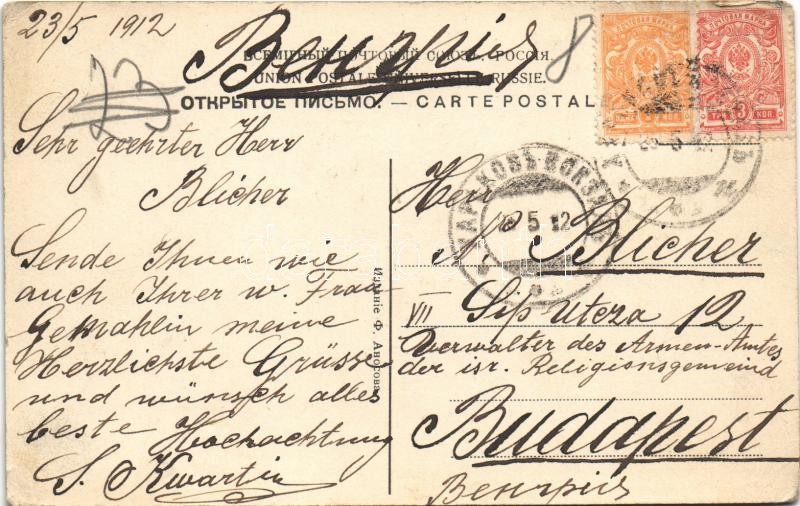 23/5 1912
Венгрія
8
ВСЕМІРНЫЙ ПОЧТОВЫЙ СОЮЗЪ. РОССІЯ.
UNION POSTALE UNIVERSELLE. RUSSIE.
ОТКРЫТОЕ ПИСЬМО. — CARTE POSTALE
23
ПОЧТОВАЯ МАРКА
ПОЧТОВАЯ МАРКА
3 КОП.
ХАРЬКОВЪ ВОКЗАЛЪ
5 12
Sehr geehrter Herr
Blicher
Sende Ihnen wie
auch Ihrer w. Frau
Gemahlin meine
Herzlichste Grüsse
und wünsch alles
beste Hochachtung
S. Kwartin
Изданіе Ф. Аносова
Herr
Blicher
VII Sip utcza 12
Verwalter des Armen-Amtes
der isr. Religionsgemeind
Budapest
Венгрія